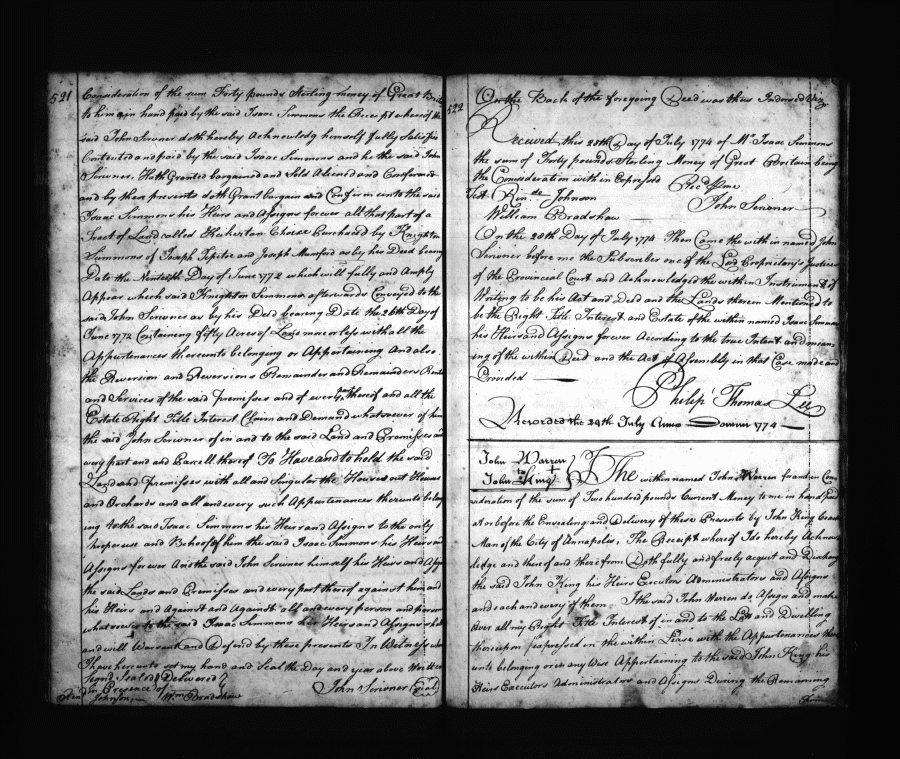 521
Consideration of the sum Forty pounds Sterling money of Great
to him in hand paid by the said Isaac Simmons the Receipt whereof
said John Scrivner doth hereby Acknowledg himself fully Satisfied
Contented and paid by the said Isaac Simmons and he the said John
Scrivner, Hath Granted bargained and Sold Aliened and Confirmed
and by these presents doth Grant bargain and Confirm unto the said
Isaac Simmons his Heirs and Assigns forever all that part of a
Tract of Land called Choice Purchased by Knighton
Simmons of Joseph and Joseph as by his Deed bearing
Date the Day of June 1772 which will fully and Amply
Appear which said Knighton Simmons afterwards Conveyed to the
said John Scrivner as by his Deed bearing Date the 26th Day of
June 1772 Containing fifty Acres of Land more or less with all the
Appurtenances thereunto belonging or Appertaining And also
the Reversion and Reversions Remainder and Remainders Rents
and Services of the said premises and of every part thereof and all the
Estate Right Title Interest Claim and Demand whatsoever of him
the said John Scrivner of in and to the said Land and Premisses and
every part and Parcell thereof To Have and to hold the said
Land and premisses with all and Singular the Houses out Houses
and Orchards and all and every such Appurtenances thereunto belong
ing to the said Isaac Simmons his Heirs and Assigns to the only
proper use and Behoof of him the said Isaac Simmons his Heirs and
Assigns forever And the said John Scrivner himself his Heirs and
the said Lands and Premises and every part thereof against him and
his Heirs and Against and Against all and every person and persons
whatsoever to the said Isaac Simmons his Heirs and Assigns shall
and will Warrant and Defend by these presents In Witness
I have hereunto set my hand and Seal the Day and year above Written
Signd Seald & Delivered
in Presence of
Johnson Wm Bradshaw
John Scrivner (seal)
522
On the Back of the foregoing Deed was thus Indorsed Viz
Received this 28th Day of July 1774 of Mr Isaac Simmons
the sum of Forty pounds Sterling Money of Great Britain being
the Consideration within Expressed
Recd me
Test. Johnson
John Scrivner
William Bradshaw
On the 28th Day of July 1774 Then Came the within named John
Scrivner before me the Subscriber one of the Lord Proprietary's Justices
of the Provincial Court and Acknowledged the within Instrument of
Writing to be his Act and Deed and the Lands therein Mentioned to
be the Right Title Interest and Estate of the within named Isaac Simmons
his Heirs and Assigns forever According to the true Intent and mean
ing of the within Deed and the Act of Assembly in that Case made and
Provided
Philip Thomas Lee
Recorded the 29th July Anno Domini 1774
John Warren
to
John King
The within named John Warren for and in Con
sideration of the sum of Two hundred pounds Current Money to me in hand paid
at or before the Ensealing and Delivery of these Presents by John King
Man of the City of Annapolis, The Receipt whereof I do hereby Acknow
ledge and thereof and therefrom Doth fully and freely acquit and Discharge
the said John King his Heirs Executors Administrators and Assigns
and each and every of them I the said John Warren do Assign and make
over all my Right Title Interest of in and to the Lott and Dwelling
thereupon Expressed in the within Lease with the Appurtenances there
unto belonging or in any Wise Appertaining to the said John King his
Heirs Executors Administrators and Assigns During the Remaining